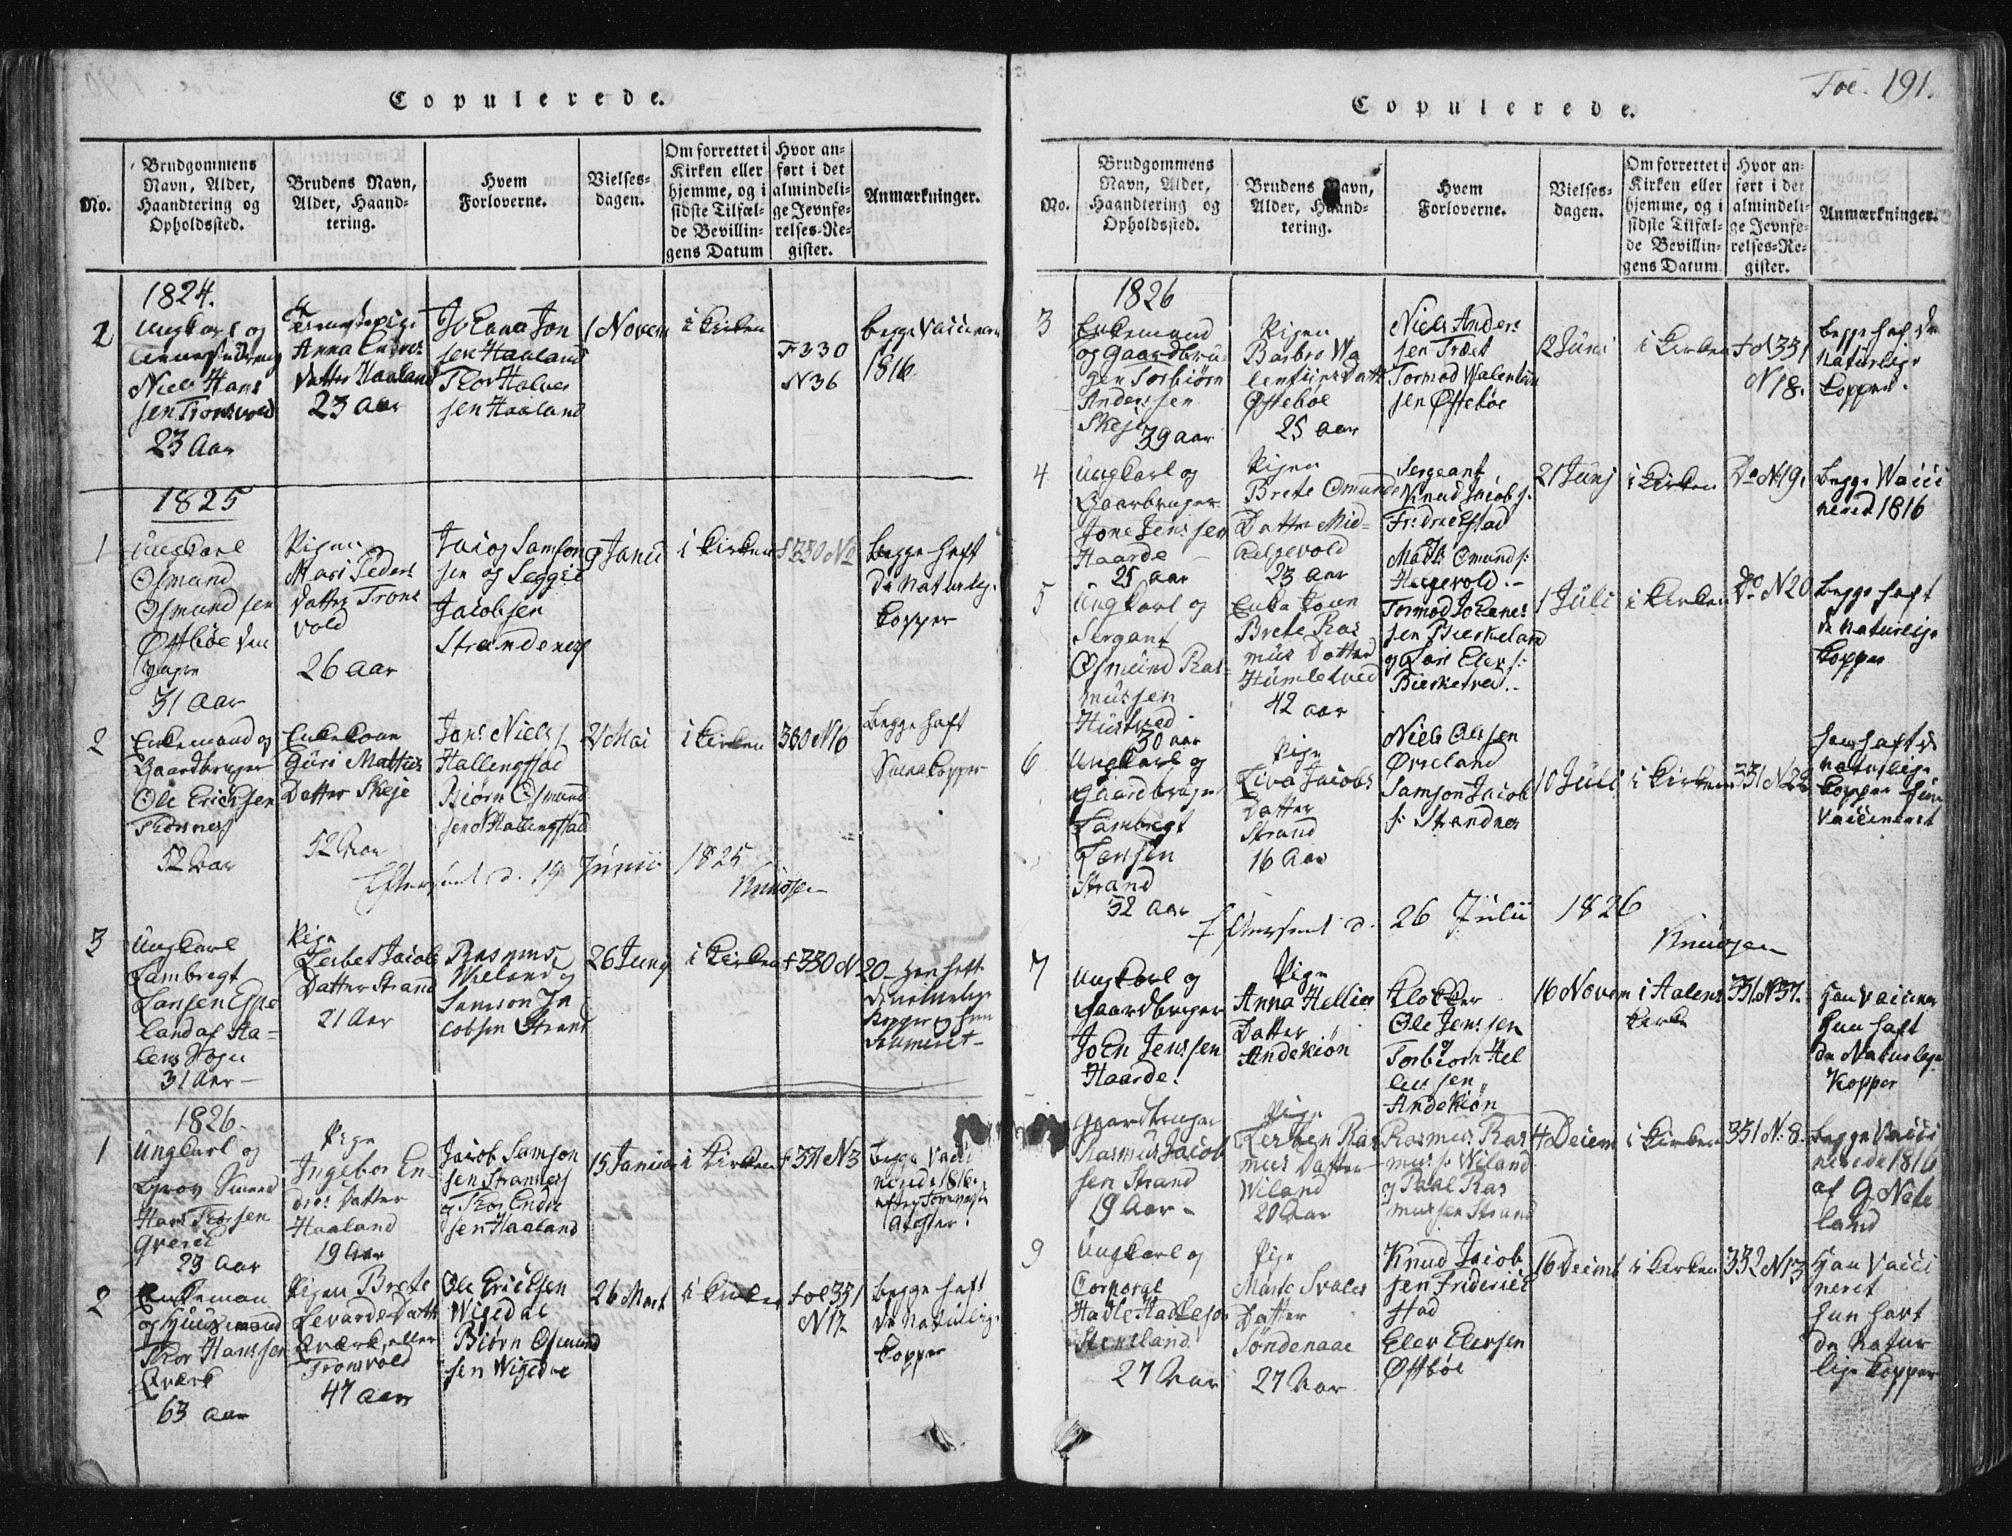 Copulerede.
No.
Brudgommens
Navn, Alder,
Haandtering og
Opholdssted.
Brudens Navn,
Alder, Haand-
tering.
Hvem
Forloverne.
Vielses-
dagen.
Om forrettet i
Kirken eller
hjemme, og i
sidste Tilfæl-
de Bevillin-
gens Datum
Hvor an-
ført i det
almindeli-
ge Jevnfø-
relses-Re-
gister.
Anmærkninger.
1824.
2
Ungkarl og
Niels Hans
sen Tronsvold
23 Aar
Anna Endres
Datter Haaland
23 Aar
Johana Jon
sen Haaland
Thor Halvor
sen Haaland
1 Novem
i Kirken
F 330
N 36
begge Vaccineret
1816
1825
1
Ungkarl
Osmund
Osmundsen
Østbøe
31 Aar
Pigen
Mari Peders
Datter Trons
vold
26 Aar
Jacog Samson
sen og Seggie
Jacobsen
Strandenes
9 Janu
i Kirken
f 330 No
begge haft
de Naturlige
kopper
2
Enkemand og
Gaardbruger
Ole Ericksen
Thorsnes
52 Aar
Enkekone
Guri Mattias
Datter Skeje
52 Aar
Jens Niels
Hallingstad
Biørn Osmund
sen Hallingstad
2 Mai
i Kirken
330 N 6
begge haft
Kopper
Efterseet d. 19 Junii 1825
Knudsen
3
Ungkarl
Lambregt
Larsen Espe
land af Aa-
lens Sogn
31 Aar
Pige
Lisbet Jacobs
Datter Strand
21 Aar
Rasmus
Wieland og
Samson Ja
cobsen Strand
26 Juny
i Kirken
f 330 N 20
han haft
de naturlige
Kopper og hun
1826.
1
Ungkarl og
Hans Thorsen
23 Aar
Pige
Ingebor En
dres Datter
Haaland
19 Aar
Jacob Samson
sen Strannes
og Thor Endre
sen Haaland
15 Januar
i Kirken
f 331 N 3
begge Vacci
nerede 1816
2
Enkeman
og Huusmand
Thor Hanssen
Qværk
63 Aar
Pigen Brete
Levards Datter
Qværk eller
Tronsvold
47 Aar
Ole Ericksen
Wigedal
Biørn Osmund
sen Wigedal
26 Mart
i Kirken
fol 331
N 17
begge haft
de Naturlige
kopper
Fol. 191.
Copulerede.
No.
Brudgommens
Navn, Alder,
Haandtering og
Opholdssted.
Brudens Navn,
Alder, Haand-
tering.
Hvem
Forloverne.
Vielses-
dagen.
Om forrettet i
Kirken eller
hjemme, og i
sidste Tilfæl-
de Bevillin-
gens Datum
Hvor an-
ført i det
almindeli-
ge Jevnfø-
relses-Re-
gister.
Anmærkninger.
1826
3
Enkemand
og Gaardbru-
ger Torbiørn
Anderssen
Skeje
39 Aar
Pigen
Barbro Wa
lentins Datt
Østebøe
25 Aar
Niels Anders
sen Træet
Tormod Walentin
sen Østebøe
12 Juni
i Kirken
fol 331
N 18.
begge haft de
Naturlige
kopper.
4
Ungkarl og
Gaarbruger
Jone Jenssen
Haarde
25 Aar
Pigen
Brete Omunds
Datter Mid-
helgevold
23 Aar
Sergeant
Knud Jacobs:
Fridrickstad
Mats Omunds:
Helgevold.
21 Junj
i Kirken
Do N 19.
begge Wacci
nered 1816
5
Ungkarl og
Sergant
Osmund Ras-
mussen
Hustved
30 Aar
Enke Kone
Brete Ras
mus Datter
Humlested
42 Aar
Tormod Johanes
sen Bierkeland
og Lars Elefs:
Bierketved.
1 Juli
i Kirken
Do N 20
begge haft
de Naturlige
kopper
6
Ungkarl og
Gaardbruger
Lambregt
Larssen
Strand
32 Aar
Pige
Liva Jacobs
Datter
Strand
16 Aar
Niels Olssen
Ørieland
Samson Jacob
s: Strandnes
10 Juli
i Kirken
331 N 22
han haft de
naturlige
kopper hun
vaccineret
Efterseet d. 26 Julii 1826
Knudsen
7
Ungkarl og
Gaardbruger
John Jenssen
Haarde.
Pige
Anna Helliks
Datter
Andekiøn
Klokker
Ole Jenssen
Torbiorn Hel
liksen
Andekiøn
16 Novem
i Aalens
Kirke
331 N 37.
han vaccineret
hun haft
de Naturlige
Kopper
Gaardbruger
Rasmus Jacob
sen Strand
19 Aar
Pige
Lisben Ras
mus Datter
Wiland
20 Aar
Rasmus Ras
mus s: Wiland
og Paal Ras
mussen Strand
4 Decem
i Kirken
331 N. 8.
begge Vacci
nerede 1816
af G Nate
land
9
Ungkarl og
Corporal
Hadle Hadlesen
Stenland.
27 Aar
Pige
Marte Svales
Datter
Søndenaae
27 Aar
Knud Jacob
sen Friderick
stad
Elev Elevsen
Østbøe
16 Decemb
i Kirken
332 N 13
han Vacci
neret
hun havt
de Natur
lige kopper